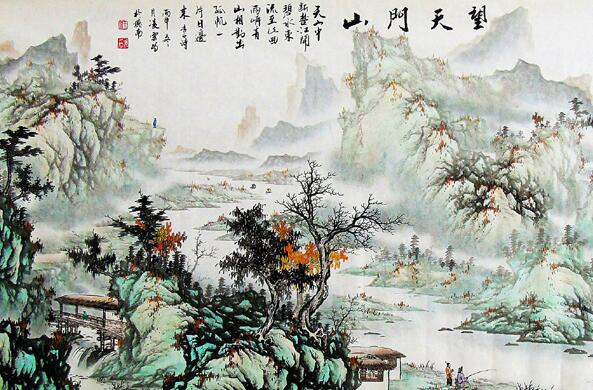 望天門山
天门中
斷楚江開
碧水東
流至此回
兩岸青
山相對出
孤帆一
片日邊
來李白詩
丙申冬
月凌雲